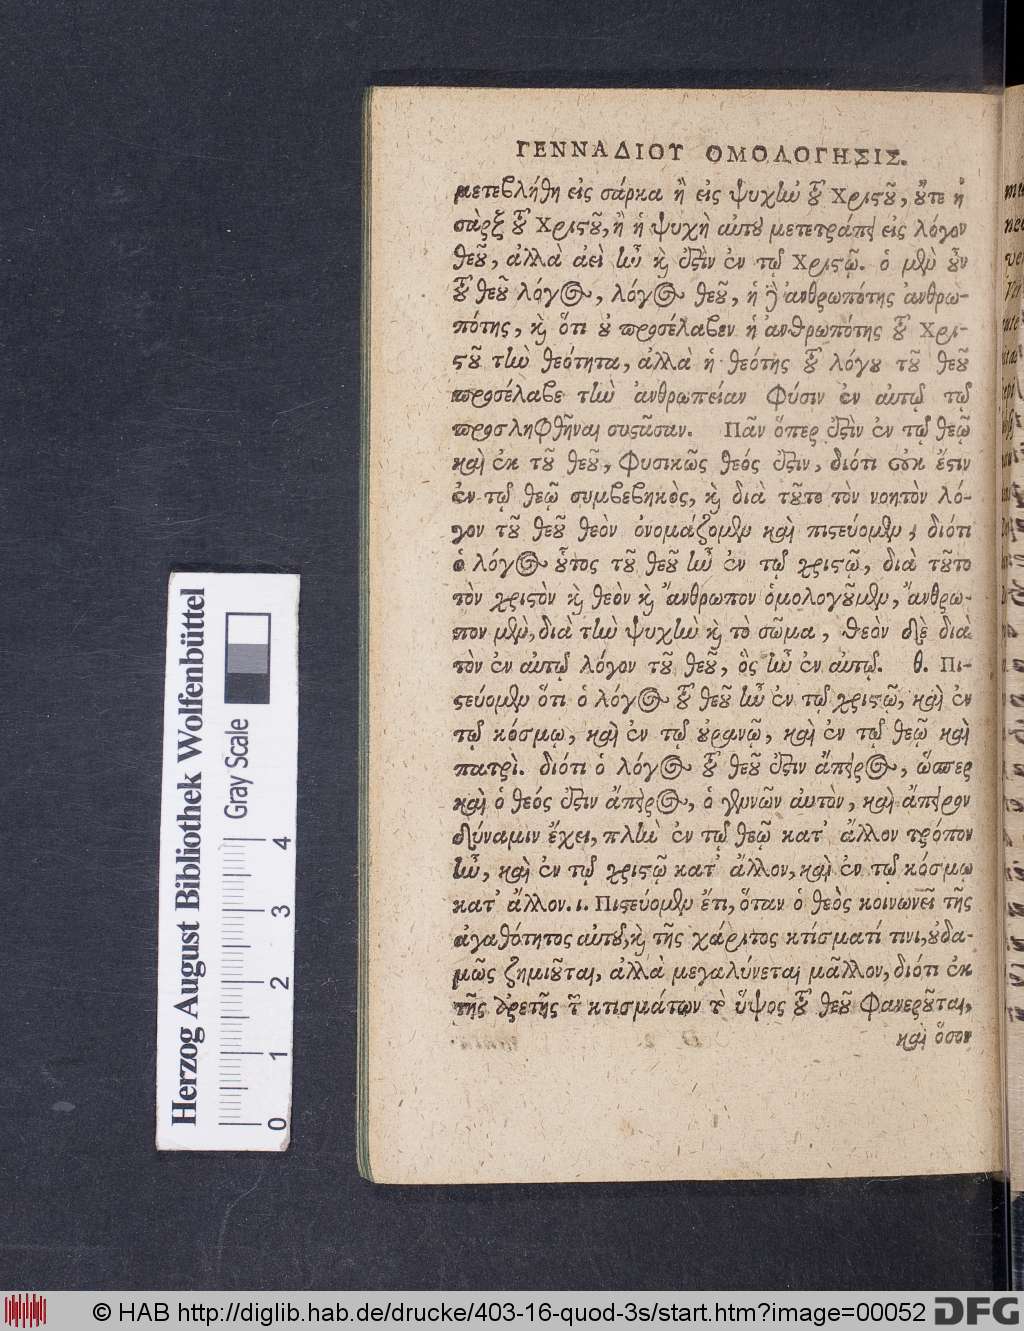 ΓΕΝΝΑΔΙΟΥ ΟΜΟΛΟΓΗΣΙΣ.
μετεβλήθη εἰς σάρκα ἢ εἰς ψυχὴν τοῦ Χριστοῦ, οὔτε ἡ
σὰρξ τοῦ Χριστοῦ, ἢ ἡ ψυχὴ αὐτοῦ μετετράπη εἰς λόγον
θεοῦ, ἀλλὰ ἀεὶ ἦν καὶ ἐστὶν ἐν τῷ Χριστῷ. ὁ μὲν οὖν
τοῦ θεοῦ λόγος, λόγος θεοῦ, ἡ δὲ ἀνθρωπότης ἀνθρω-
πότης, καὶ ὅτι οὐ προσέλαβεν ἡ ἀνθρωπότης τοῦ Χρι-
στοῦ τὴν θεότητα, ἀλλὰ ἡ θεότης τοῦ λόγου τοῦ θεοῦ
προσέλαβε τὴν ἀνθρωπείαν φύσιν ἐν αὐτῷ τῷ
προσληφθῆναι συστᾶσαν. Πᾶν ὅπερ ἐστὶν ἐν τῷ θεῷ
καὶ ἐκ τοῦ θεοῦ, φυσικῶς θεός ἐστιν, διότι οὐκ ἔστιν
ἐν τῷ θεῷ συμβεβηκὸς, καὶ διὰ τοῦτο τὸν νοητὸν λό-
γον τοῦ θεοῦ θεὸν ὀνομάζομεν καὶ πιστεύομεν, διότι
ὁ λόγος οὗτος τοῦ θεοῦ ἦν ἐν τῷ χριστῷ, διὰ τοῦτο
τὸν χριστὸν καὶ θεὸν καὶ ἄνθρωπον ὁμολογοῦμεν, ἄνθρω-
πον μὲν, διὰ τὴν ψυχὴν καὶ τὸ σῶμα, θεὸν δὲ διὰ
τὸν ἐν αὐτῷ λόγον τοῦ θεοῦ, ὃς ἦν ἐν αὐτῷ. θ. Πι-
στεύομεν ὅτι ὁ λόγος τοῦ θεοῦ ἦν ἐν τῷ χριστῷ, καὶ ἐν
τῷ κόσμῳ, καὶ ἐν τῷ οὐρανῷ, καὶ ἐν τῷ θεῷ καὶ
πατρὶ. διότι ὁ λόγος τοῦ θεοῦ ἐστιν ἄπειρος, ὥσπερ
καὶ ὁ θεός ἐστιν ἄπειρος, ὁ γεννῶν αὐτὸν, καὶ ἄπειρον
δύναμιν ἔχει, πλὴν ἐν τῷ θεῷ κατ᾽ ἄλλον τρόπον
ἦν, καὶ ἐν τῷ χριστῷ κατ᾽ ἄλλον, καὶ ἐν τῷ κόσμῳ
κατ᾽ ἄλλον. ι. Πιστεύομεν ἔτι, ὅταν ὁ θεὸς κοινωνεῖ τῆς
ἀγαθότητος αὐτοῦ, καὶ τῆς χάριτος κτίσματί τινι, οὐδα-
μῶς ζημιοῦται, ἀλλὰ μεγαλύνεται μᾶλλον, διότι ἐκ
τῆς ἀρετῆς τῶν κτισμάτων τὸ ὕψος τοῦ θεοῦ φανεροῦται,
καὶ ὅσον
Herzog August Bibliothek Wolfenbüttel
Gray Scale
0 1 2 3 4
© HAB http://diglib.hab.de/drucke/403-16-quod-3s/start.htm?image=00052 DFG